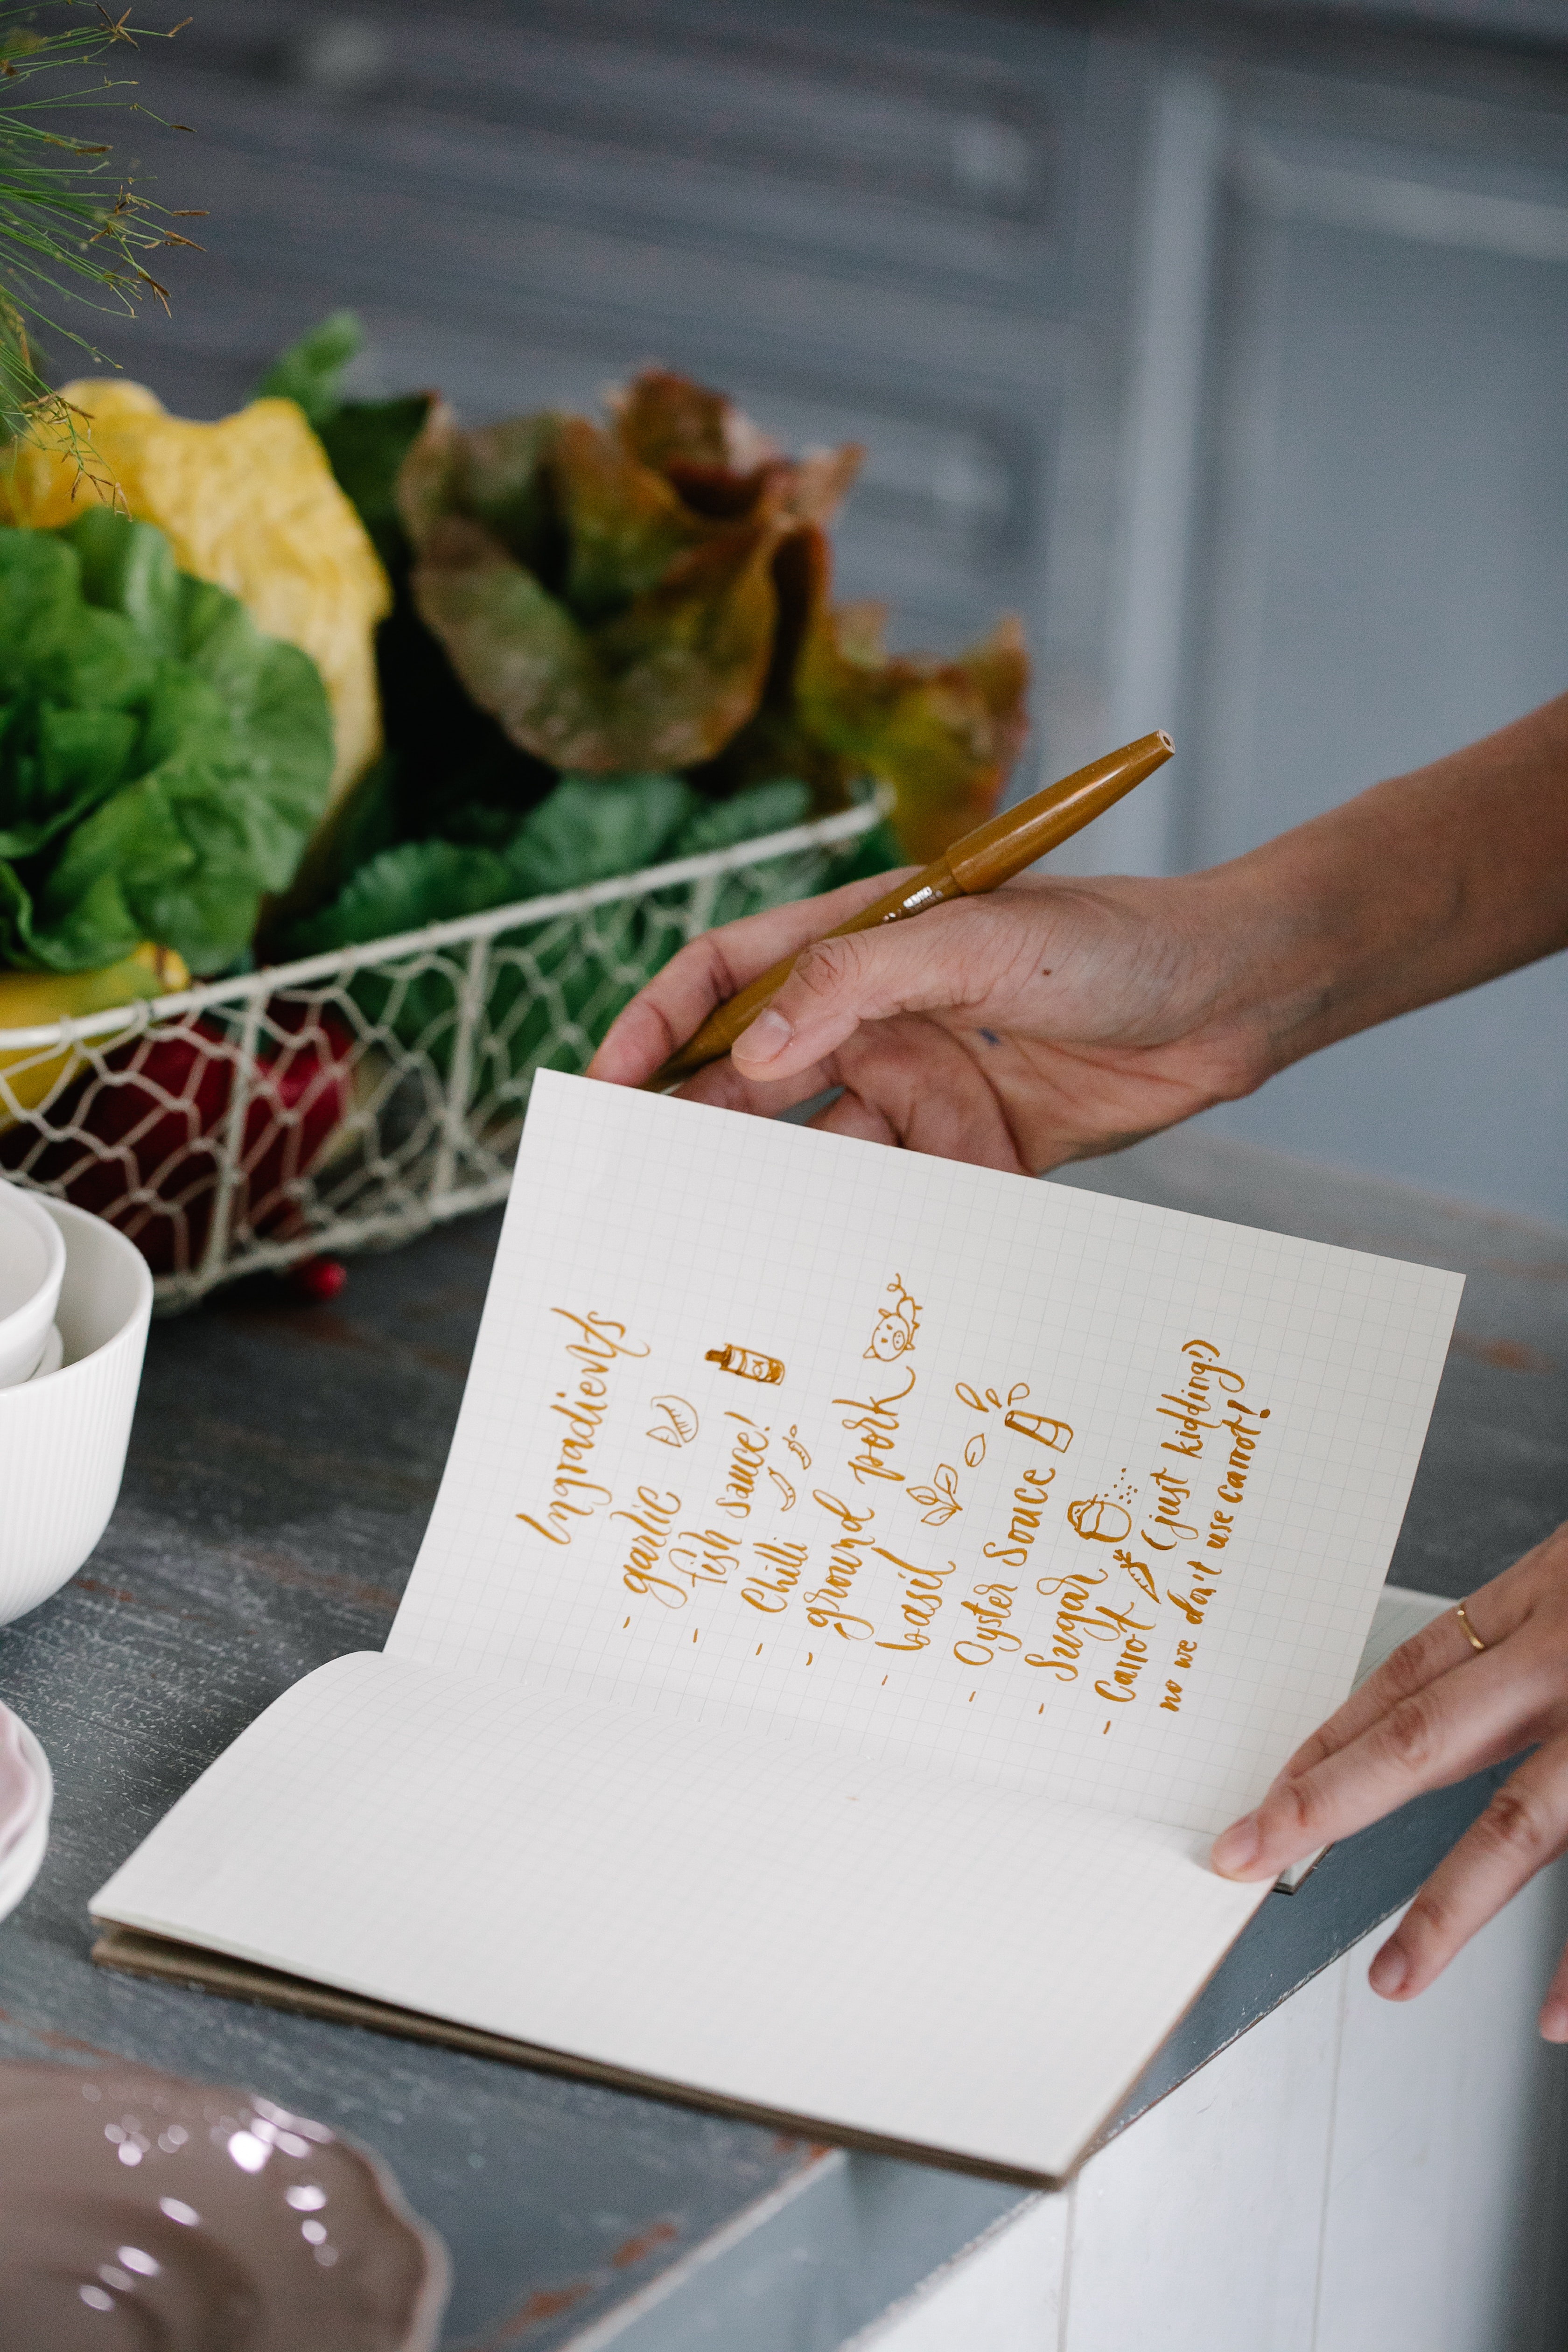 Ingradients
- garlic
- fish sauce!
- Chilli
- ground pork
- basil
- Oyster Souce
- Sugar
- Carrot (just kidding!)
no we don't use carrot!